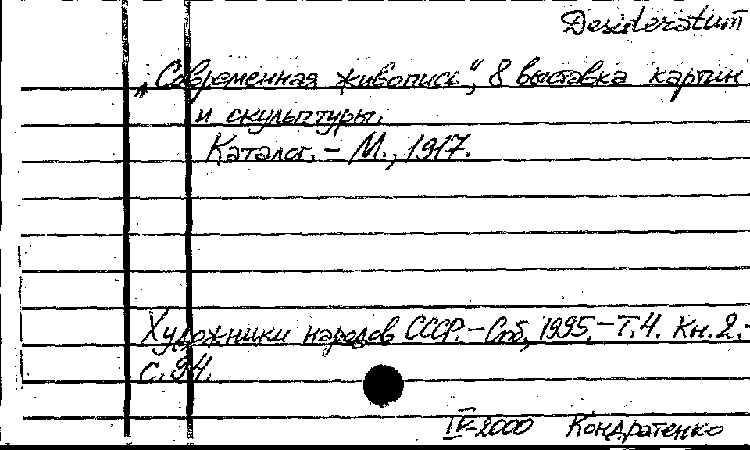 Desideratum
„Современная живопись“, 8 выставка картин
и скульптуры.
Каталог. – М., 1917.
Художники народов СССР. – Спб, 1995. – Т.4. Кн.2. –
с.94.
IV-2000 Кондратенко